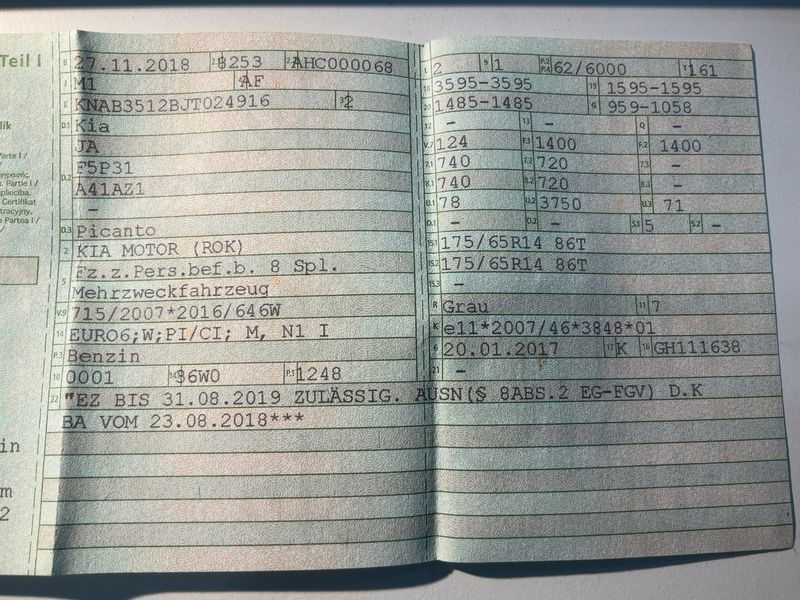 Teil I
B 27.11.2018 8253 AHC000068
J M1 4 AF
E KNAB3512BJT024916 3 2
D.1 Kia
JA
D.2 F5P31
A41AZ1
–
D.3 Picanto
2 KIA MOTOR (ROK)
5 Fz.z.Pers.bef.b. 8 Spl.
Mehrzweckfahrzeug
V.9 715/2007*2016/646W
14 EURO6;W;PI/CI; M, N1 I
P.3 Benzin
10 0001 36W0 P.1 1248
22 "EZ BIS 31.08.2019 ZULÄSSIG. AUSN(§ 8ABS.2 EG-FGV) D.K
BA VOM 23.08.2018***
L 2 9 1 P.2 P.4 62/6000 T 161
18 3595-3595 19 1595-1595
20 1485-1485 G 959-1058
12 – 13 – Q –
V.7 124 F.1 1400 F.2 1400
7.1 740 7.2 720 7.3 –
8.1 740 8.2 720 8.3 –
U.1 78 U.2 3750 U.3 71
O.1 – O.2 – S.1 5 S.2 –
15.1 175/65R14 86T
15.2 175/65R14 86T
15.3 –
R Grau 11 7
K e11*2007/46*3848*01
6 20.01.2017 17 K 16 GH111638
21 –
lik
Parte I /
. Partie I /
Certifikat
Partea I /
in
m
2